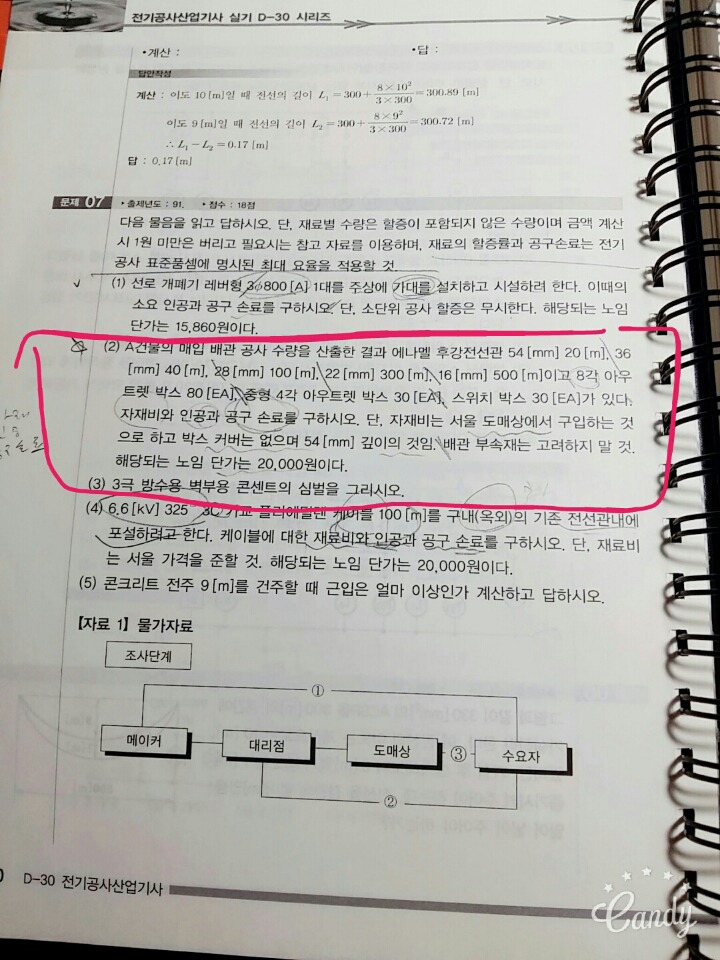 전기공사산업기사 실기 D-30 시리즈
•계산 : •답 :
답안작성
계산 : 이도 10[m]일 때 전선의 길이 L₁ = 300 + (8×10²)/(3×300) = 300.89 [m]
이도 9[m]일 때 전선의 길이 L₂ = 300 + (8×9²)/(3×300) = 300.72 [m]
∴ L₁ - L₂ = 0.17 [m]
답 : 0.17[m]
문제 07 •출제년도 : 91. •점수 : 18점
다음 물음을 읽고 답하시오. 단, 재료별 수량은 할증이 포함되지 않은 수량이며 금액 계산
시 1원 미만은 버리고 필요시는 참고 자료를 이용하며, 재료의 할증률과 공구손료는 전기
공사 표준품셈에 명시된 최대 요율을 적용할 것.
(1) 선로 개폐기 레버형 800[A] 1대를 주상에 가대를 설치하고 시설하려 한다. 이때의
소요 인공과 공구 손료를 구하시오. 단, 소단위 공사 할증은 무시한다. 해당되는 노임
단가는 15,860원이다.
(2) A건물의 매입 배관 공사 수량을 산출한 결과 에나멜 후강전선관 54[mm] 20[m], 36
[mm] 40[m], 28[mm] 100[m], 22[mm] 300[m], 16[mm] 500[m]이고 8각 아우
트렛 박스 80[EA], 중형 4각 아우트렛 박스 30[EA], 스위치 박스 30[EA]가 있다.
자재비와 인공과 공구 손료를 구하시오. 단, 자재비는 서울 도매상에서 구입하는 것
으로 하고 박스 커버는 없으며 54[mm] 깊이의 것임. 배관 부속재는 고려하지 말 것.
해당되는 노임 단가는 20,000원이다.
(3) 3극 방수용 벽부용 콘센트의 심벌을 그리시오.
(4) 6.6[kV] 325 가교 폴리에틸렌 케이블 100[m]를 구내(옥외)의 기존 전선관내에
포설하려고 한다. 케이블에 대한 재료비와 인공과 공구 손료를 구하시오. 단, 재료비
는 서울 가격을 준할 것. 해당되는 노임 단가는 20,000원이다.
(5) 콘크리트 전주 9[m]를 건주할 때 근입은 얼마 이상인가 계산하고 답하시오.
【자료 1】 물가자료
조사단계
①
메이커 대리점 도매상 ③ 수요자
②
D-30 전기공사산업기사
Candy